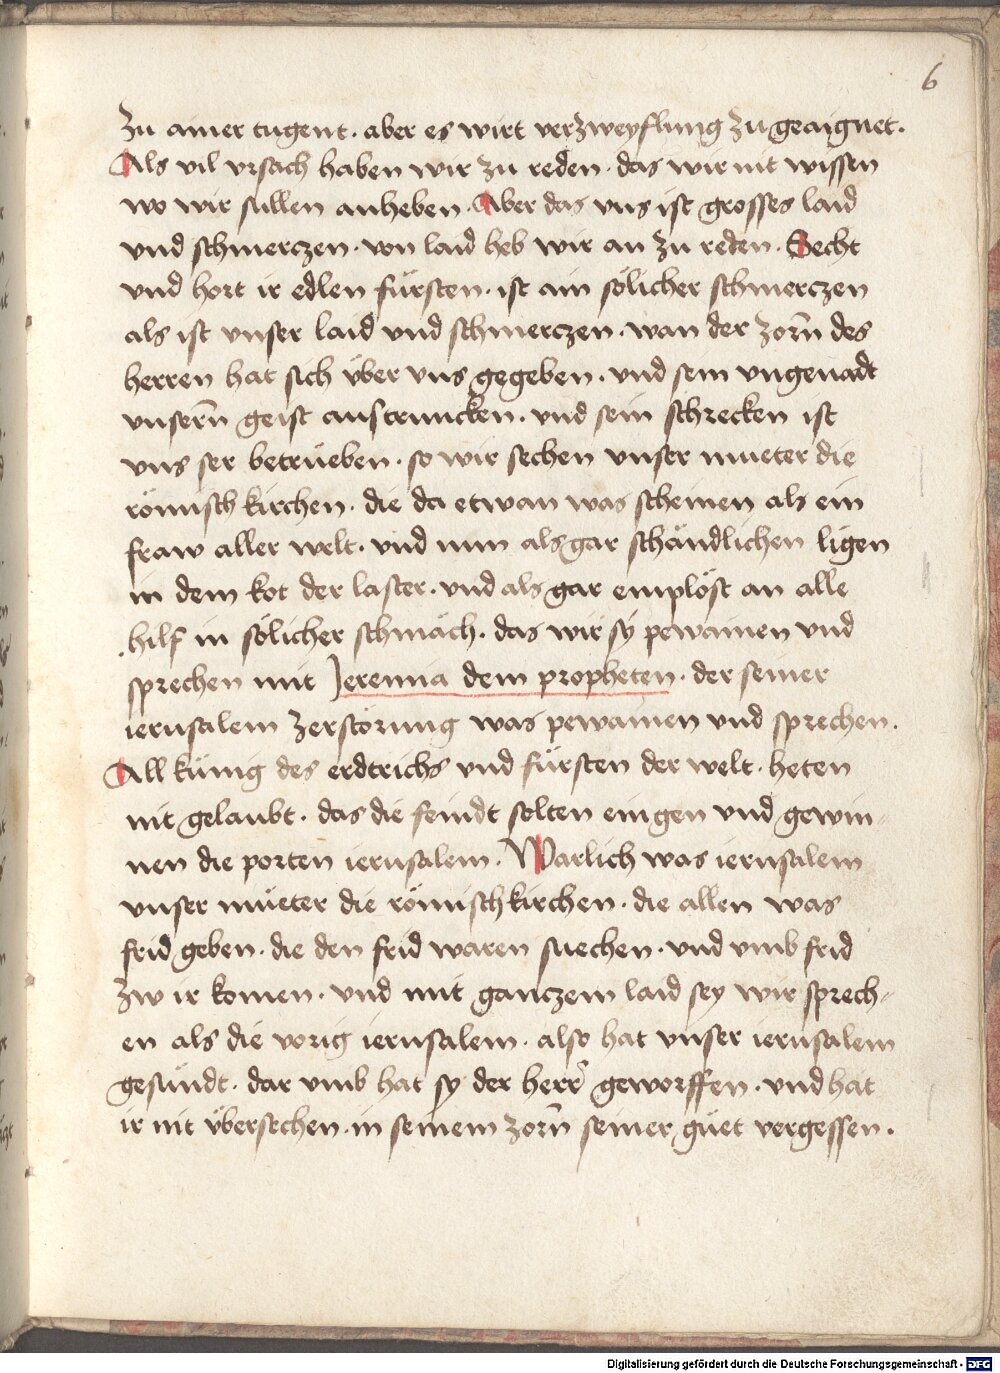 6
zu ainer tugent · aber es wirt verzweyflung zu geaignet.
Als vil vrsach haben wir zu reden · das wir nit wissen
wo wir sullen anheben · Aber das vns ist grosses laid
vnd schmerczen · von laid heb wir an zu reden · Secht
vnd hort ir edlen fürsten · ist ain sölicher schmerczen
als ist vnser laid vnd schmerczen · wan der zorn̄ des
herren hat sich über vns gegeben · vnd sein vngenadt
vnsern̄ geist austruncken · vnd sein schrecken ist
vns ser betrüeben · so wir sechen vnser mueter die
römisch kirchen · die da etwan was scheinen als ein
fraw aller welt · vnd nun als gar schändlichen ligen
in dem kot der laster · vnd als gar emplöst an alle
hilf in sölicher schmäch · das wir sÿ pewainen vnd
sprechen mit Jeremia dem propheten · der seiner
ierusalem zerstörung was pewainen vnd sprechen ·
All künig des erdtrichs vnd fürsten der welt · heten
nit gelaubt · das die feindt solten eingen vnd gewin-
nen die porten ierusalem · Warlich was ierusalem
vnser müeter die römisch kirchen · die allen was
frid geben · die den frid waren suechen · vnd vmb frid
zw ir komen · vnd mit ganczem laid sey wir sprech-
en als die vorig ierusalem · also hat vnser ierusalem
gesündt · dar vmb hat sy der herr̄ geworffen · vnd hat
ir nit übersechen · in seinem zorn̄ seiner güet vergessen ·
Digitalisierung gefördert durch die Deutsche Forschungsgemeinschaft - DFG